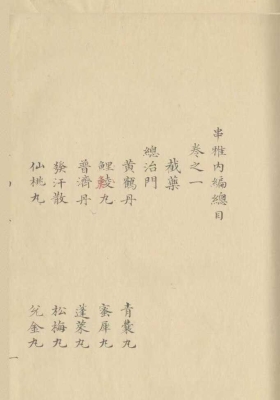 串雅内編總目
卷之一
截藥
總治門
黃鶴丹 青囊丸
鯉鯪丸 蜜犀丸
普濟丹 蓬萊丸
發汗散 松梅丸
仙桃丸 兌金丸
一